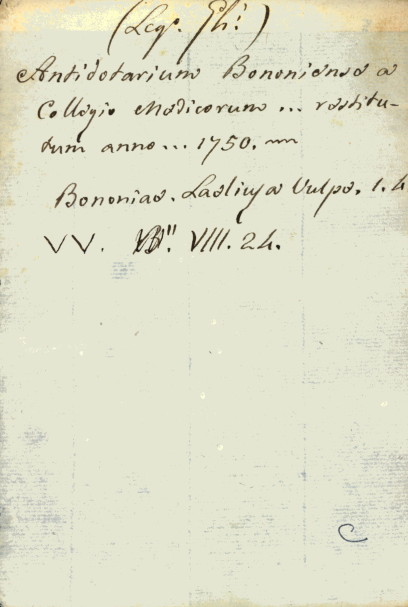 (Legs. Gh.)
Antidotarium Bononiense a
Collegio Medicorum ... restitu-
tum anno ... 1750.
Bononiae. Laelius a Vulpe. 1.4
VV. VIII. 24.
C